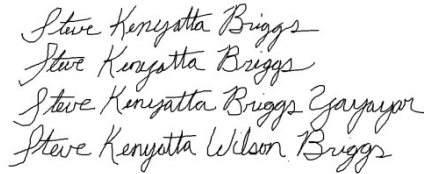 Steve Kenyatta Briggs
Steve Kenyatta Briggs
Steve Kenyatta Briggs Yayayar
Steve Kenyatta Wilson Briggs